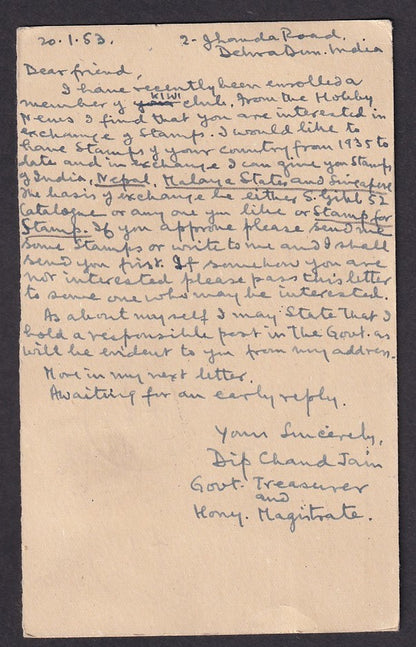 20.1.53. 2- Jhanda Road.
Dehra Dun. India
Dear friend,
I have recently been enrolled a
member of your KIWI club. From the Hobby
News I find that you are interested in
exchange of Stamps. I would like to
have Stamps of your country from 1935 to
date and in exchange I can give you Stamps
of India, Nepal, Malaya States and Singapore
The basis of exchange be either S. Gibb 52
Catalogue or any one you like or Stamp for
Stamp. If you approve please send me
some Stamps or write to me and I shall
send you first. If somehow you are
not interested please pass this letter
to some one who may be interested.
As about myself I may State that I
hold a responsible post in the Govt. as
will be evident to you from my address.
More in my next letter.
Awaiting for an early reply.
Yours Sincerely,
Dip Chand Jain
Govt. Treasurer
and
Hony. Magistrate.